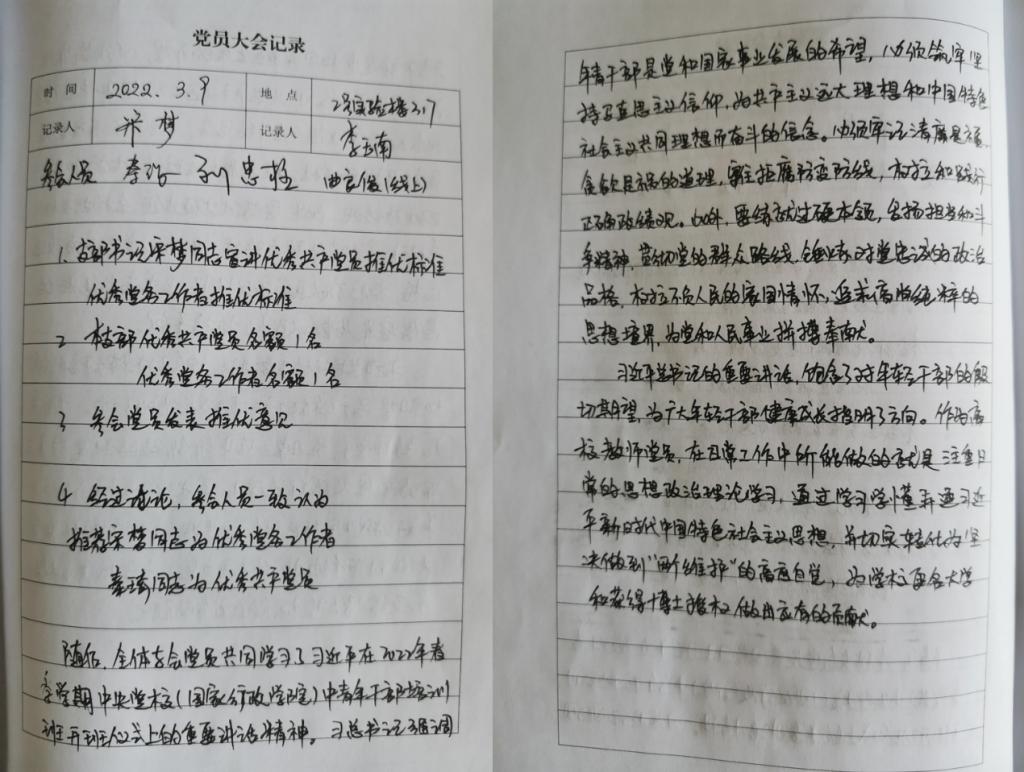 党员大会记录
时 间 2022. 3. 9 地 点 2号实验楼317
记录人 宋梦 记录人 李云南
参会人员 秦琦 刘忠 (线上)
1. 支部书记宋梦同志宣讲优秀共产党员推优标准
优秀党务工作者推优标准
2 本支部优秀共产党员名额1名
优秀党务工作者名额1名
3 参会党员发表推优意见
4 经过讨论，参会人员一致认为
推荐宋梦同志为优秀党务工作者
秦琦同志为优秀共产党员
随后，全体参会党员共同学习了习近平在2022年春
季学期中央党校(国家行政学院)中青年干部培训
班开班仪式上的重要讲话精神。习总书记强调
年青干部是党和国家事业发展的希望，必须筑牢坚
持马克思主义信仰，为共产主义远大理想和中国特色
社会主义共同理想而奋斗的信念。必须牢记清廉是福、
贪欲是祸的道理，拒腐防变防线，树立和践行
正确政绩观。此外，要练就过硬本领，发扬担当和斗
争精神，贯彻党的群众路线，锤炼对党忠诚的政治
品格，树立不负人民的家国情怀，追求高尚纯粹的
思想境界，为党和人民事业拼搏奉献。
习近平总书记的重要讲话，饱含了对年轻干部的殷
切期望，为广大年轻干部健康成长指明了方向。作为高
校教师党员，在日常工作中所能做的就是注重日
常的思想政治理论学习，通过学习学懂弄通习近
平新时代中国特色社会主义思想，并切实转化为坚
决做到“两个维护”的高度自觉，为学校更名大学
和获得博士授权做出应有的贡献。